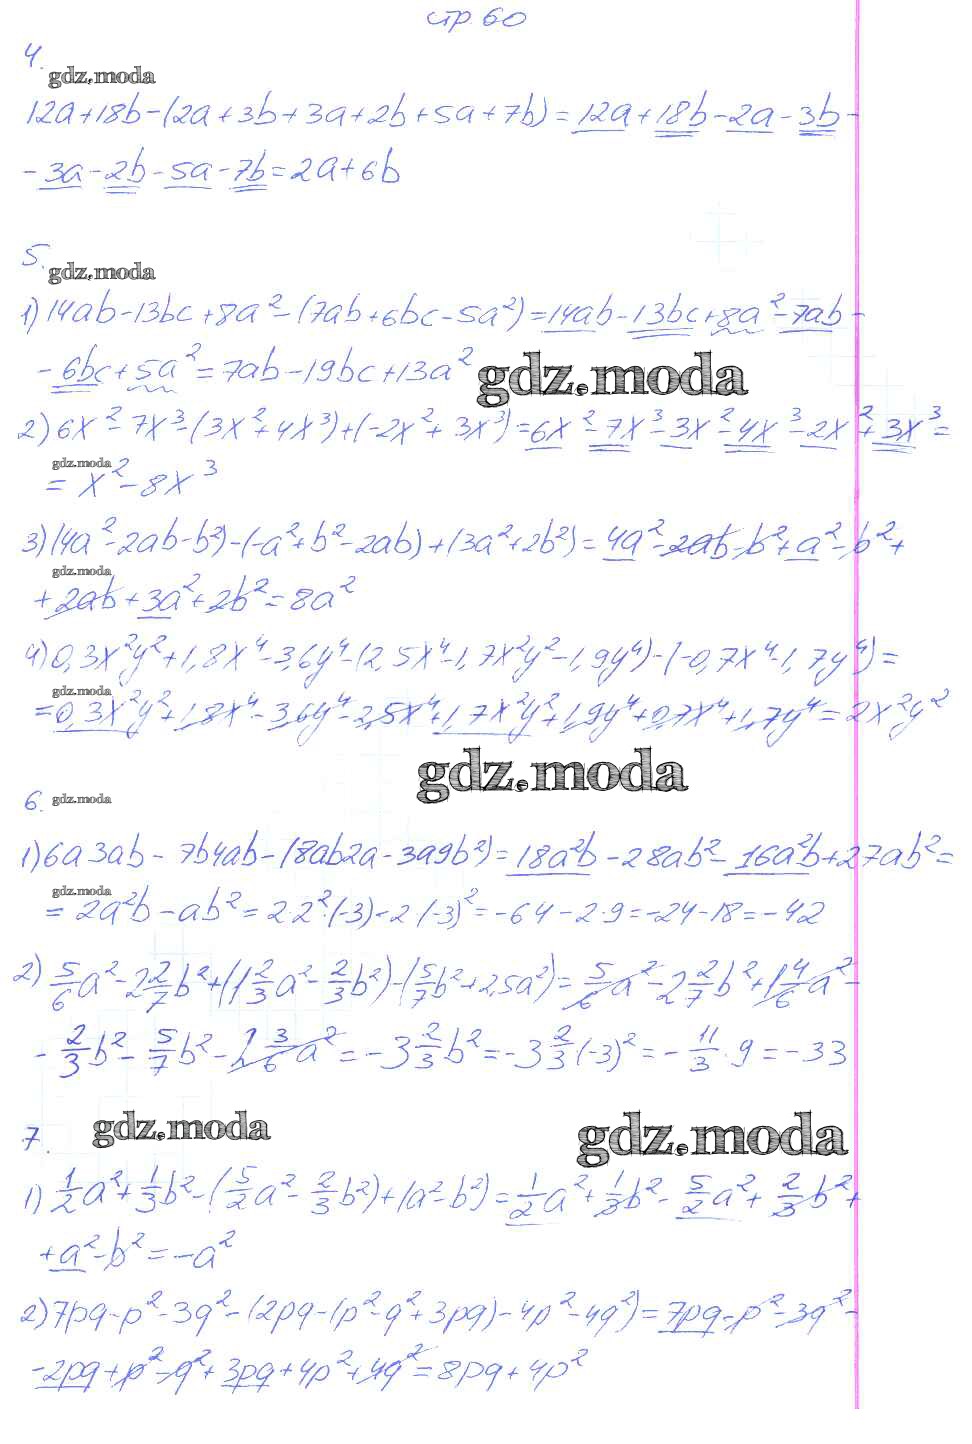 стр. 60
4.
gdz.moda
12a+18b-(2a+3b+3a+2b+5a+7b)=12a+18b-2a-3b-
-3a-2b-5a-7b=2a+6b
5.
gdz.moda
1) 14ab-13bc+8a²-(7ab+6bc-5a²)=14ab-13bc+8a²-7ab-
-6bc+5a²=7ab-19bc+13a²
gdz.moda
2) 6x²-7x³-(3x²+4x³)+(-2x²+3x³)=6x²-7x³-3x²-4x³-2x²+3x³=
gdz.moda
=x²-8x³
3) (4a²-2ab-b²)-(-a²+b²-2ab)+(3a²+2b²)=4a²-2ab-b²+a²-b²+
gdz.moda
+2ab+3a²+2b²=8a²
4) 0,3x²y²+1,8x⁴-3,6y⁴-(2,5x⁴-1,7x²y²-1,9y⁴)-(-0,7x⁴-1,7y⁴)=
gdz.moda
=0,3x²y²+1,8x⁴-3,6y⁴-2,5x⁴+1,7x²y²+1,9y⁴+0,7x⁴+1,7y⁴=2x²y²
gdz.moda
6.
gdz.moda
1) 6a3ab-7b4ab-(8ab2a-3a9b²)=18a²b-28ab²-16a²b+27ab²=
gdz.moda
=2a²b-ab²=2·2²·(-3)-2·(-3)²=-64-2·9=-24-18=-42
2) 5/6a²-2 2/7b²+(1 2/3a²-2/3b²)-(5/7b²+2,5a²)=5/6a²-2 2/7b²+1 4/6a²-
-2/3b²-5/7b²-2 3/6a²=-3 2/3b²=-3 2/3(-3)²=-11/3·9=-33
7.
gdz.moda
gdz.moda
1) 1/2a²+1/3b²-(5/2a²-2/3b²)+(a²-b²)=1/2a²+1/3b²-5/2a²+2/3b²+
+a²-b²=-a²
2) 7pq-p²-3q²-(2pq-(p²-q²+3pq)-4p²-4q²)=7pq-p²-3q²-
-2pq+p²-q²+3pq+4p²+4q²=8pq+4p²